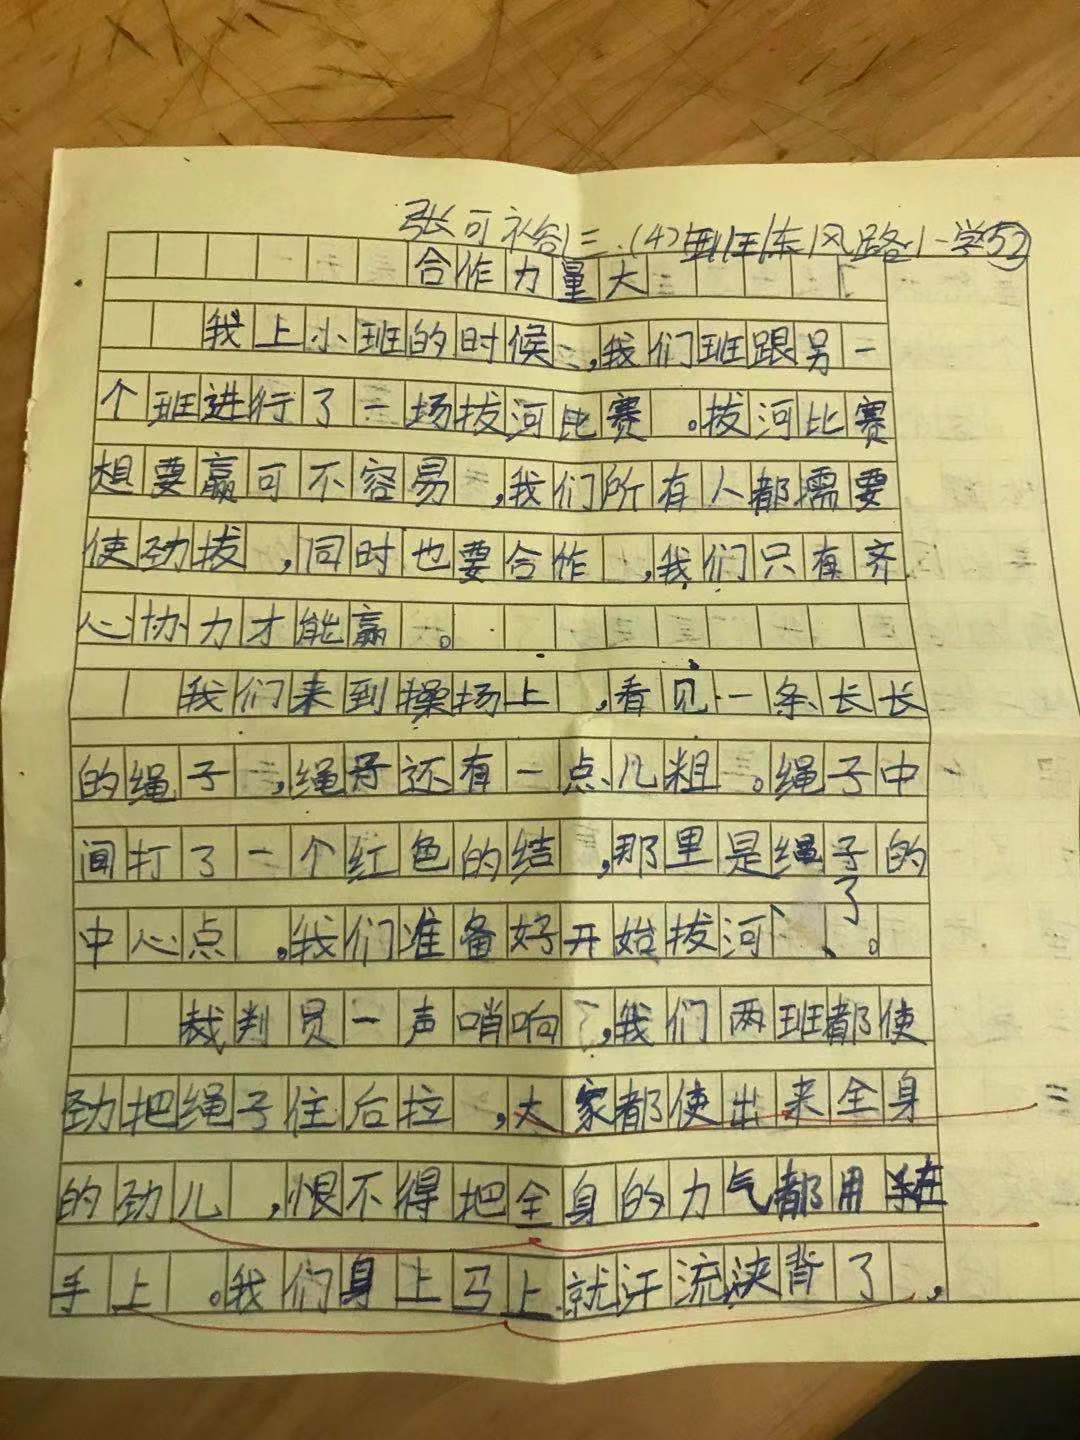 张可 三.(4)班 东风路小学52
合作力量大
我上小班的时候,我们班跟另一
个班进行了一场拔河比赛。拔河比赛
想要赢可不容易,我们所有人都需要
使劲拔,同时也要合作,我们只有齐
心协力才能赢。
我们来到操场上,看见一条长长
的绳子,绳子还有一点儿粗。绳子中
间打了一个红色的结,那里是绳子的
中心点。我们准备好开始拔河了。
裁判员一声哨响,我们两班都使
劲把绳子住后拉,大家都使出来全身
的劲儿,恨不得把全身的力气都用在
手上。我们身上马上就汗流浃背了,